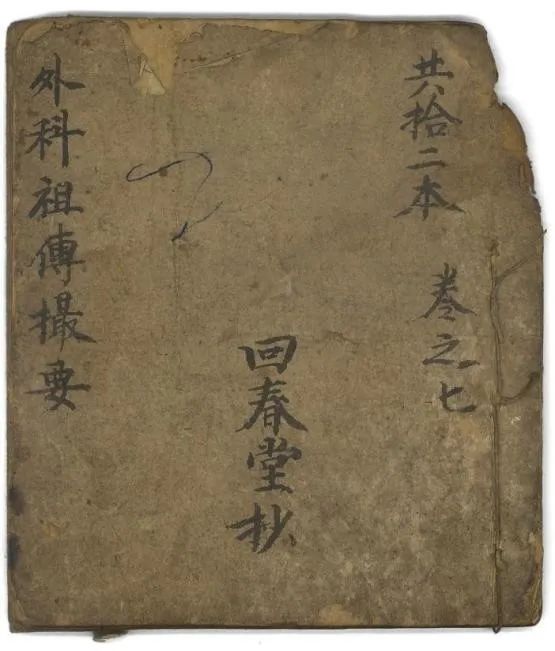 共拾二本 卷之七
回春堂抄
外科祖傳撮要